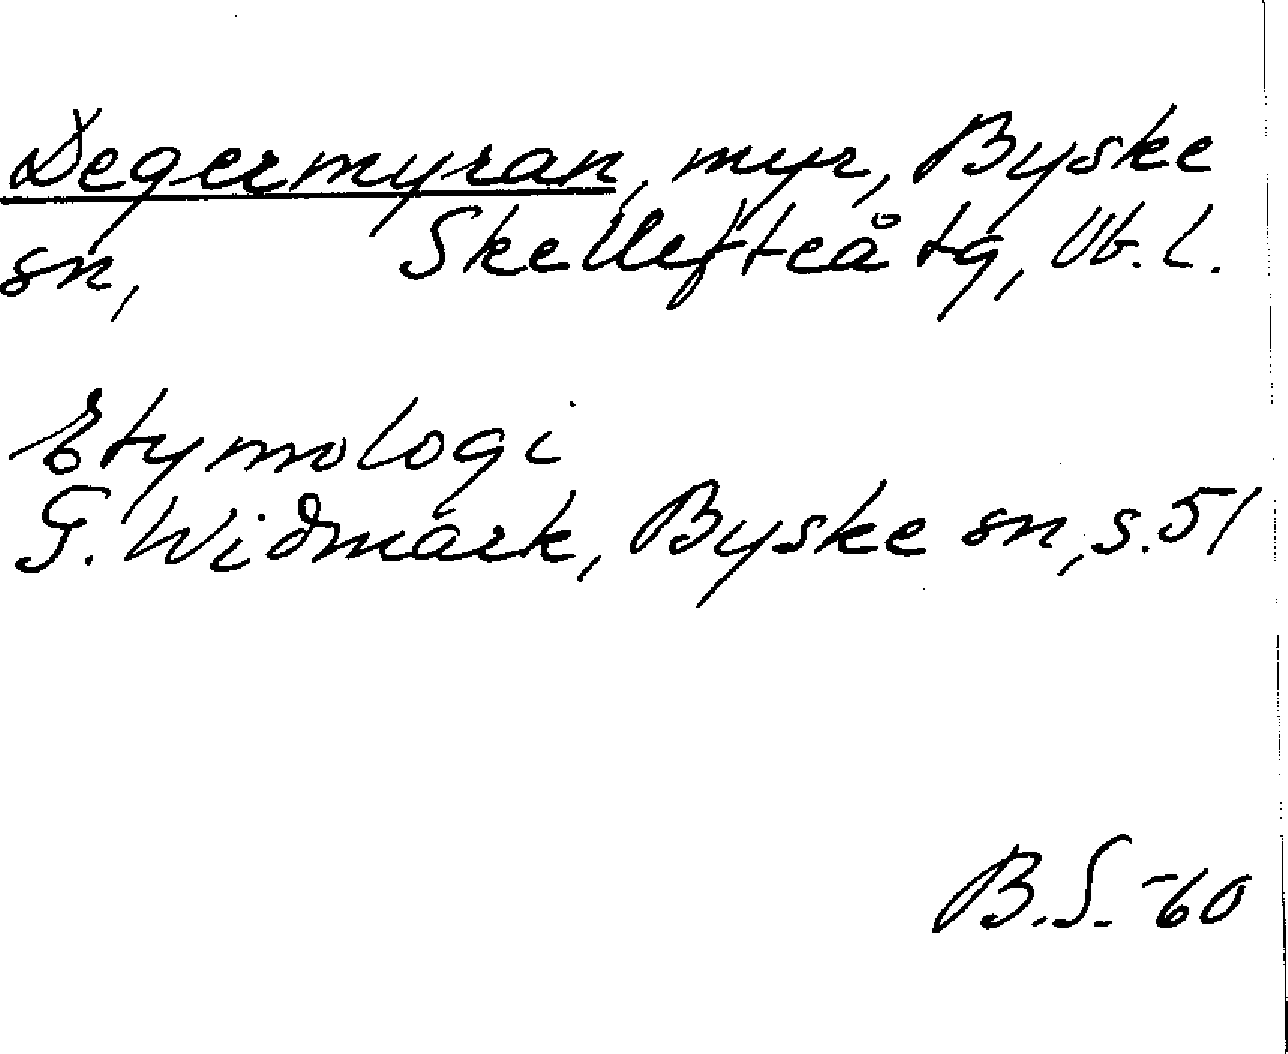 Degermyran, myr, Byske
sn, Skellefteå tg, Vb. l.
Etymologi
G. Widmark, Byske sn, s. 51
B.S. -60